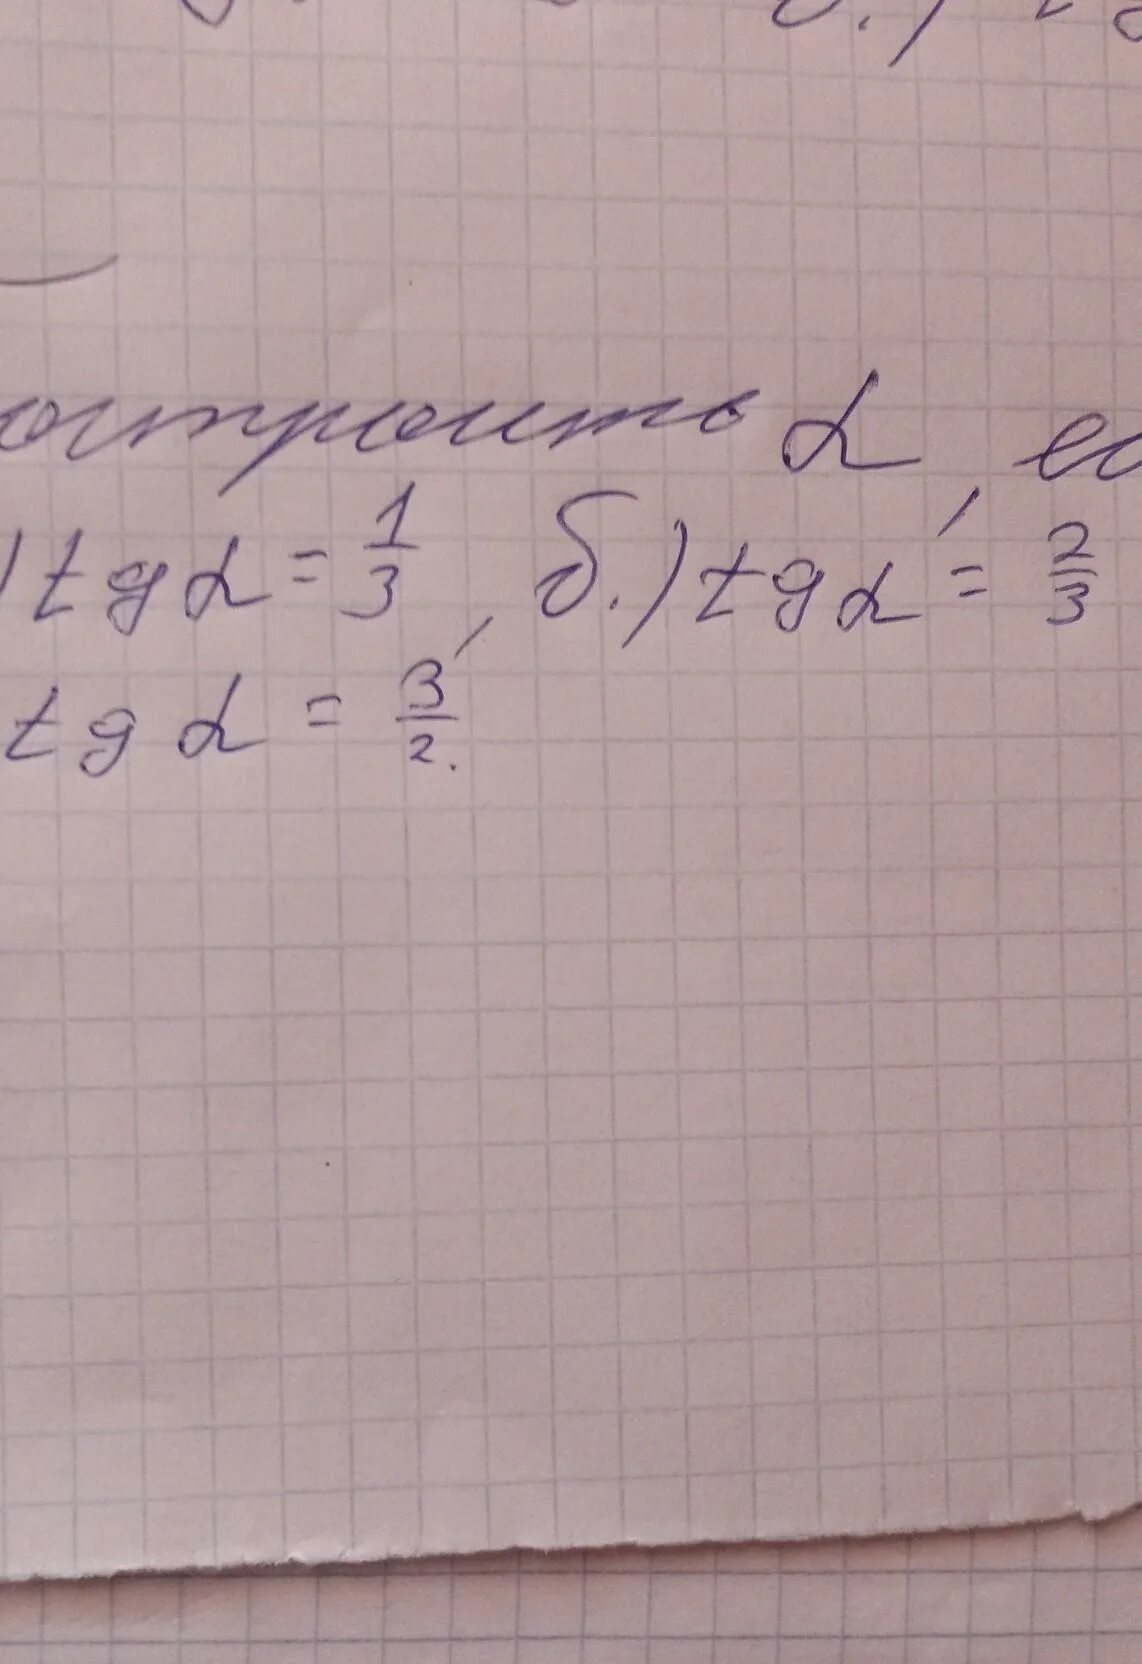 остроить α, ес
) tg α = 1/3, б.) tg α = 2/3
tg α = 3/2.